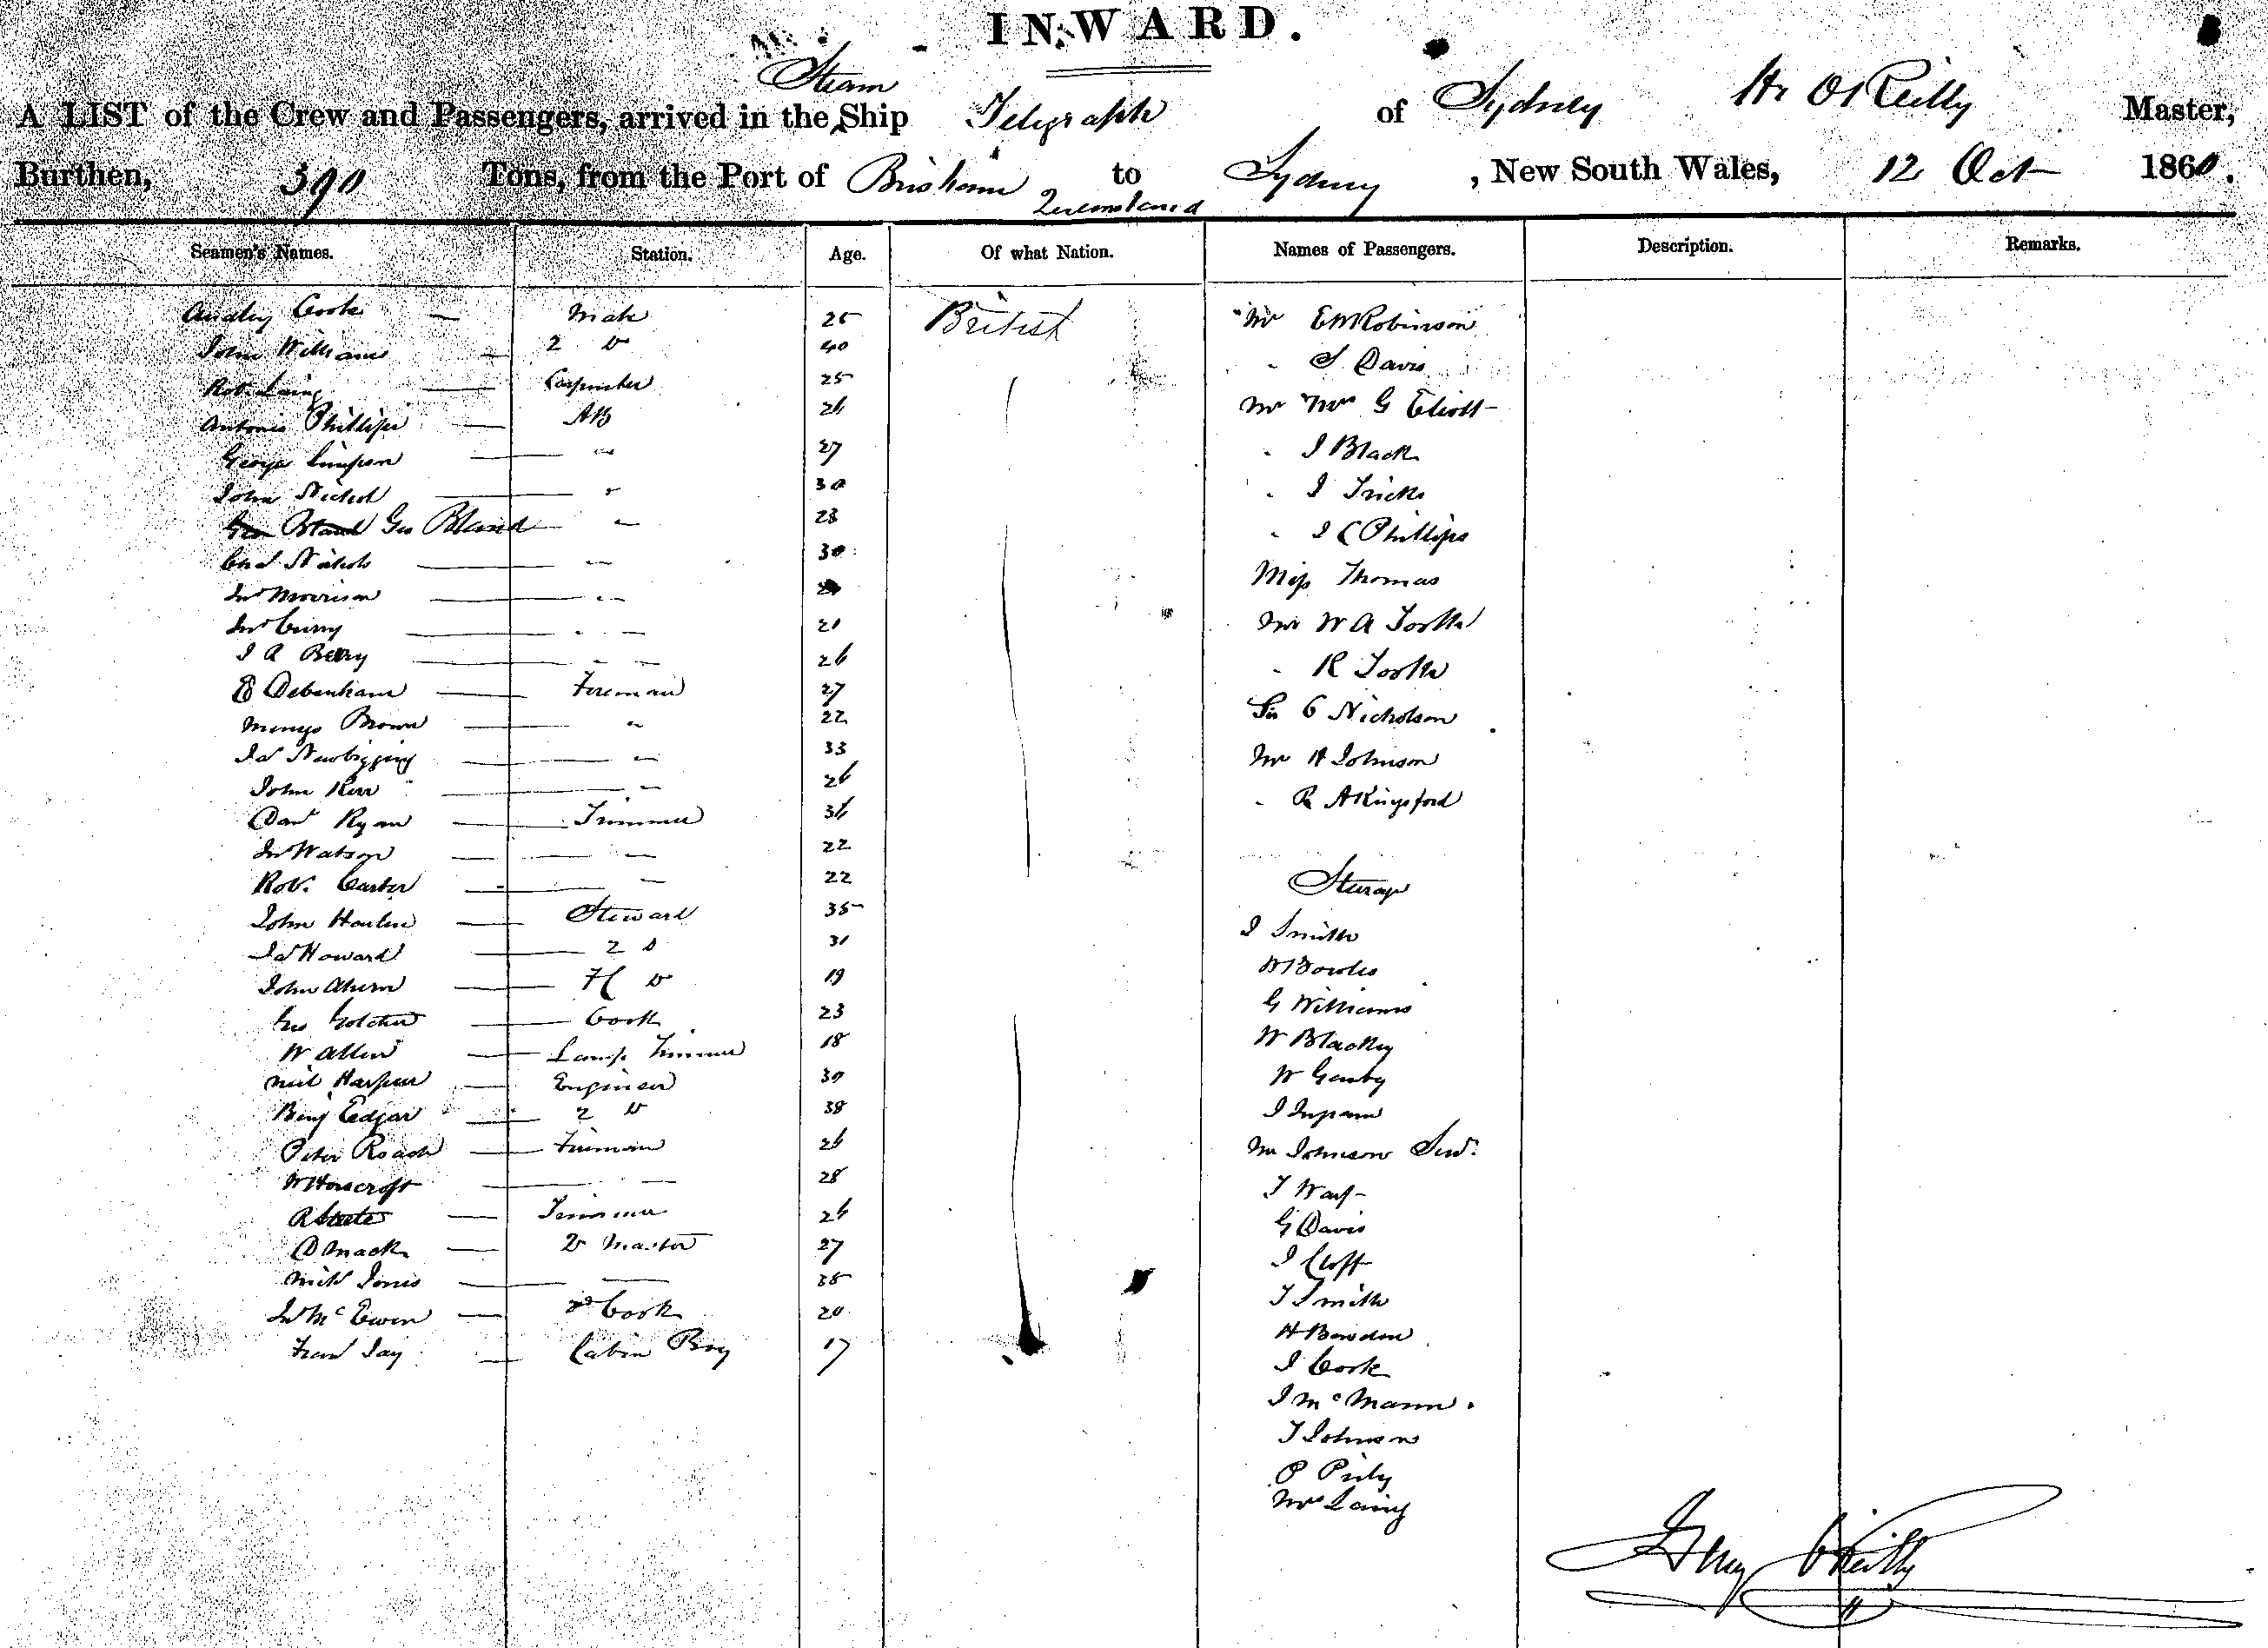 INWARD.
Steam
A LIST of the Crew and Passengers, arrived in the Ship Telegraph of Sydney Hy O'Reilly Master,
Burthen, 390 Tons, from the Port of Brisbane to Sydney, New South Wales, 12 Oct 1860.
Queensland
Seamen's Names. Station. Age. Of what Nation. Names of Passengers. Description. Remarks.
Audley Cook — Mate 25 British Mr E M Robinson
John Williams — 2 Do 40 " S Davis
Robt Laing — Carpenter 25 Mr Mrs G Eliott
Antonio Phillips — AB 26 " J Black
George Simpson — " 27 " J Tricks
John Nichol — " 30 " J C Phillips
Geo Bland Geo Bland — " 23 Miss Thomas
Chas Nichols — " 30 Mr W A Tooth
Jno Morrison — " Mr R Tooth
Jno Curry — " 21 Sir C Nicholson
J R Berry — " 26 Mr H Johnson
E Debenham — Fireman 27 " R A Kingsford
Mungo Brown — " 22
Jas Newbigging — " 33
John Kerr — " 26
Danl Ryan — Trimmer 36
Jno Watson — " 22
Robt Carter — " 22 Steerage
John — Steward 35 J Smith
Jas Howard — 2 Do 31 W Bowles
John Ahern — F C Do 19 G Williams
Geo Golcher — Cook 23 W Blackey
W Allen — Lamp Trimmer 18 W
Neil Harper — Engineer 30 J Ingram
Benj Edgar — 2 Do 38 Mr Johnson Senr.
Peter Roach — Fireman 26 T
W Horscroft — " 28 G Davis
R — Trimmer 26 J Cloff
D Mack — Do Master 27 T Smith
Jones — 38 H Bowden
Jno McEwen — 2d Cook 20 J Cook
Jay — Cabin Boy 17 J McMann.
T Johnson
P
Mrs Laing
Henry O'Reilly